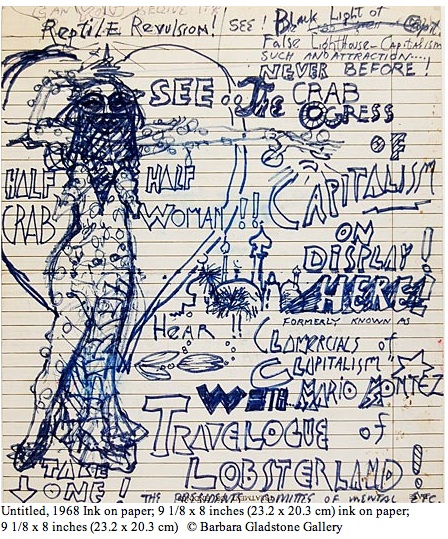 (CAN YOU BELIEVE IT?)
REPTILE REVULSION! SEE! Black Light of
False Lighthouse - Capitalism
SUCH AN ATTRACTION....
NEVER BEFORE!
SEE.. The CRAB
OGRESS
OF
HALF HALF CAPITALISM
CRAB WOMAN!!
ON
DISPLAY!
HERE!
FORMERLY KNOWN AS
HEAR !! CLAMERCIALS of
CLAPITALISM"
WITH MARIO MONTEZ
TRAVELOGUE of
LOBSTERLAND!
TAKE
ONE! THE PRESIDENT'S COMMITTEE OF MENTAL ETC.
Untitled, 1968 Ink on paper; 9 1/8 x 8 inches (23.2 x 20.3 cm) ink on paper;
9 1/8 x 8 inches (23.2 x 20.3 cm) © Barbara Gladstone Gallery